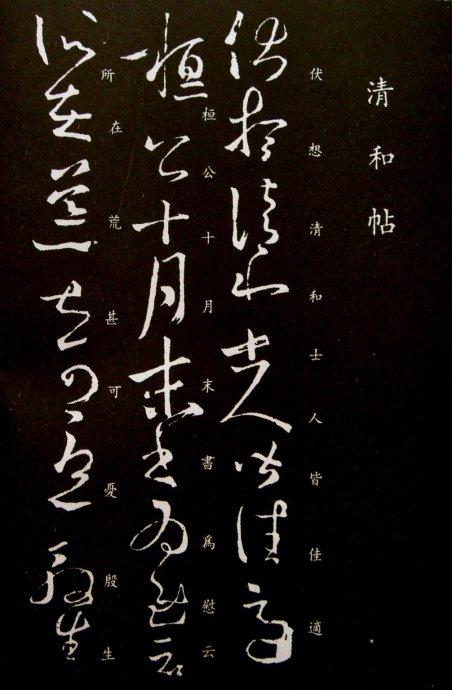 清和帖
伏想清和士人皆佳適
伏想清和士人皆佳適
桓公十月末書為慰云
桓公十月末書為慰云
所在荒甚可憂殷生
所在荒甚可憂殷生